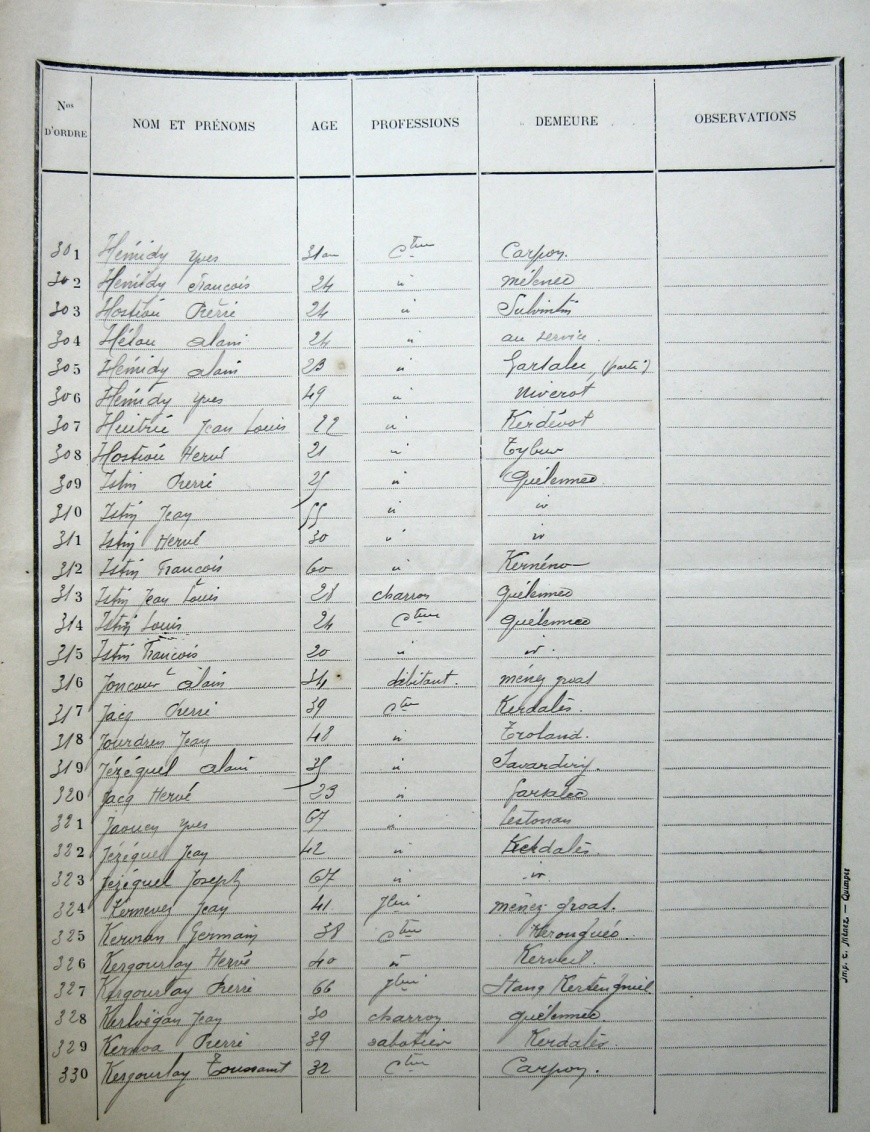 Nos D'ORDRE NOM ET PRÉNOMS AGE PROFESSIONS DEMEURE OBSERVATIONS
301 Hémidy Yves 31 an Cteur Carpon.
302 Hémidy François 24 " mélenec
303 Hostiou Pierre 24 " Sulvintin
304 Hélou Alain 24 " au service.
305 Hémidy Alain 23 " Garsalec, (parti)
306 Hémidy Yves 49 " Niverot
307 Huitric Jean Louis 22 " Kerdévot
308 Hostiou Hervé 21 " Tybur
309 Istin Pierre 25 " Quélennec
310 Istin Jean 55 " id
311 Istin Hervé 30 " id
312 Istin François 60 " Kernéno
313 Istin Jean Louis 28 charron quélennec
314 Istin Louis 24 Cteur quélennec
315 Istin François 20 " id.
316 Joncour Alain 34 débitant. ménez groas
317 Jacq Pierre 39 Cteur Kerdalès.
318 Jourdren Jean 48 " Troland.
319 Jézéquel Alain 35 " Savardiry.
320 Jacq Hervé 23 " Garsalec
321 Jaouen Yves 67 " Lestonan
322 Jézéquel Jean 42 " Kerdalès.
323 Jézéquel Joseph 67 " id
324 Kernevez Jean 41 Jlier ménez groas.
325 Kervran Germain 38 Cteur Kerouguéo.
326 Kergourlay Hervé 40 " Kerveil.
327 Kergourlay Pierre 66 Jlier Stang
328 Kerlvégan Jean 30 charron quélennec.
329 Kernoa Pierre 39 sabotier Kerdalès.
330 Kergourlay Toussaint 32 Cteur Carpon.
Imp. E. Ménez — Quimper